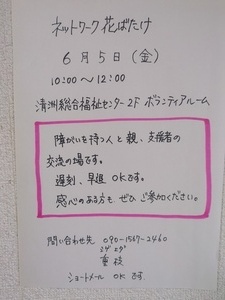 ネットワーク花ばたけ
6月5日(金)
10:00〜12:00
清洲総合福祉センター2F ボランティアルーム
障がいを持つ人と親、支援者の
交流の場です。
遅刻、早退 OKです。
感心のある方も ぜひ ご参加ください。
問い合わせ先 090-1567-2460
重枝
ショートメール OK です